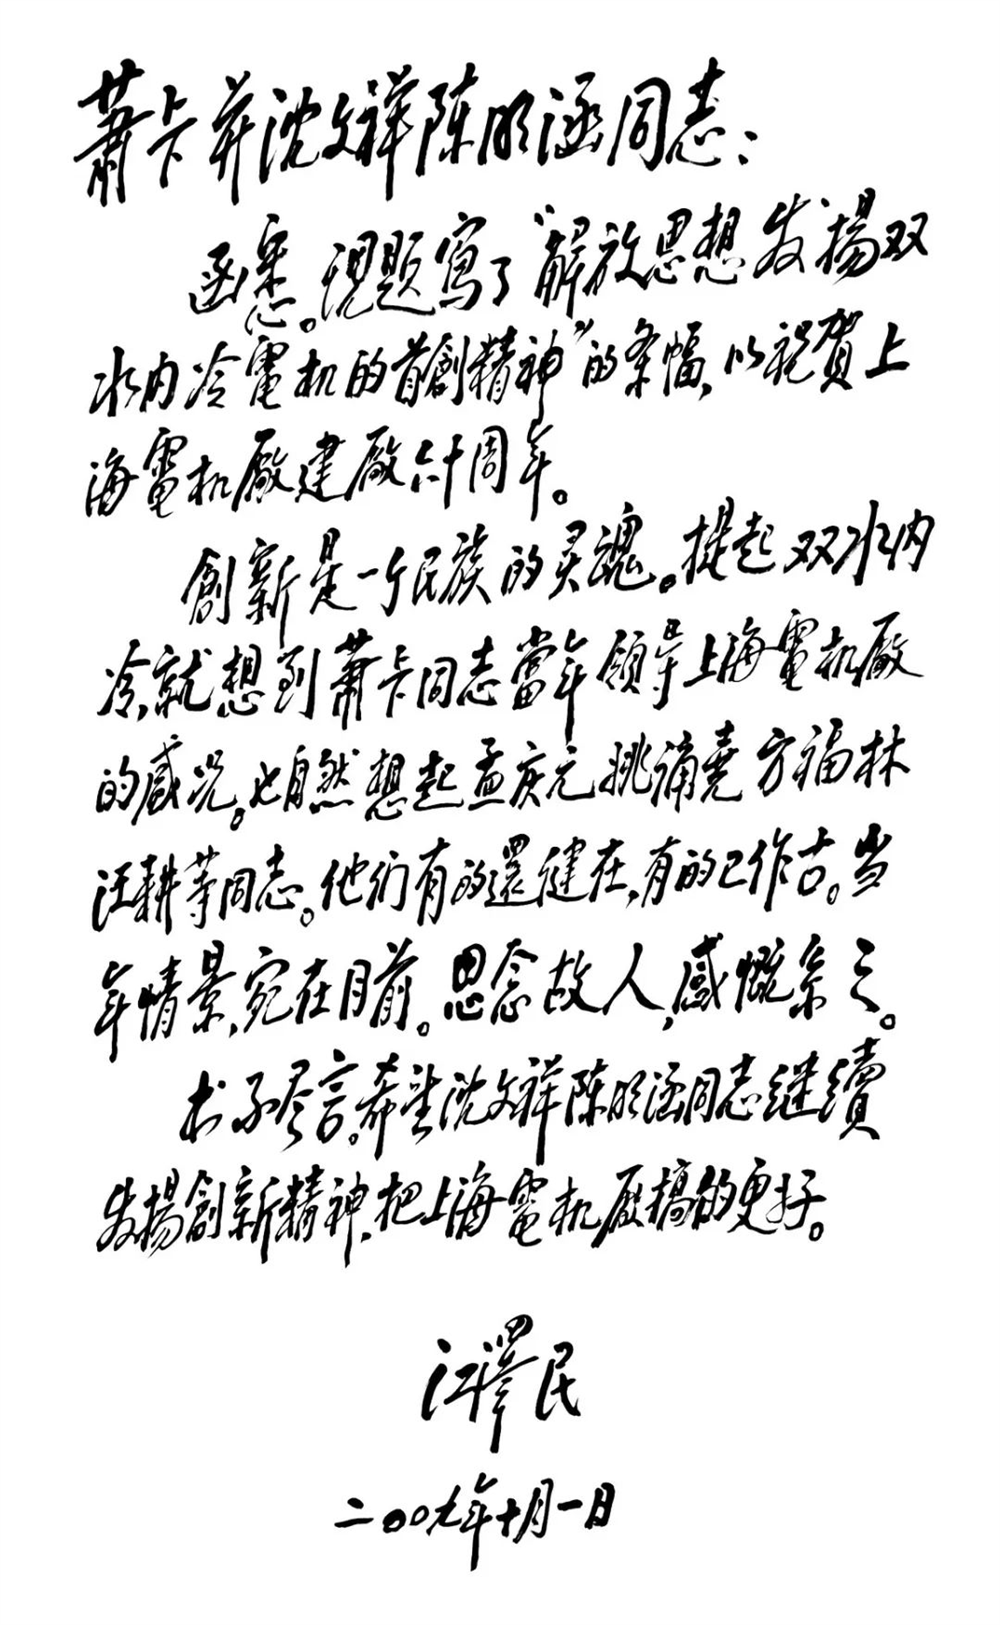 萧卡并沈文祥陈明涵同志：
函悉。現題寫了“解放思想 发揚双
水内冷電机的首創精神”的条幅，以祝賀上
海電机廠建廠六十周年。
創新是一个民族的灵魂。提起双水内
冷，就想到萧卡同志當年領导上海電机廠
的盛况。也自然想起孟庆元 姚诵尧 方福林
汪耕等同志。他们有的還健在，有的已作古。当
年情景，宛在目前。思念故人，感慨系之。
书不尽言。希望沈文祥陈明涵同志继續
发揚創新精神，把上海電机廠搞的更好。
江澤民
二〇〇九年十月一日